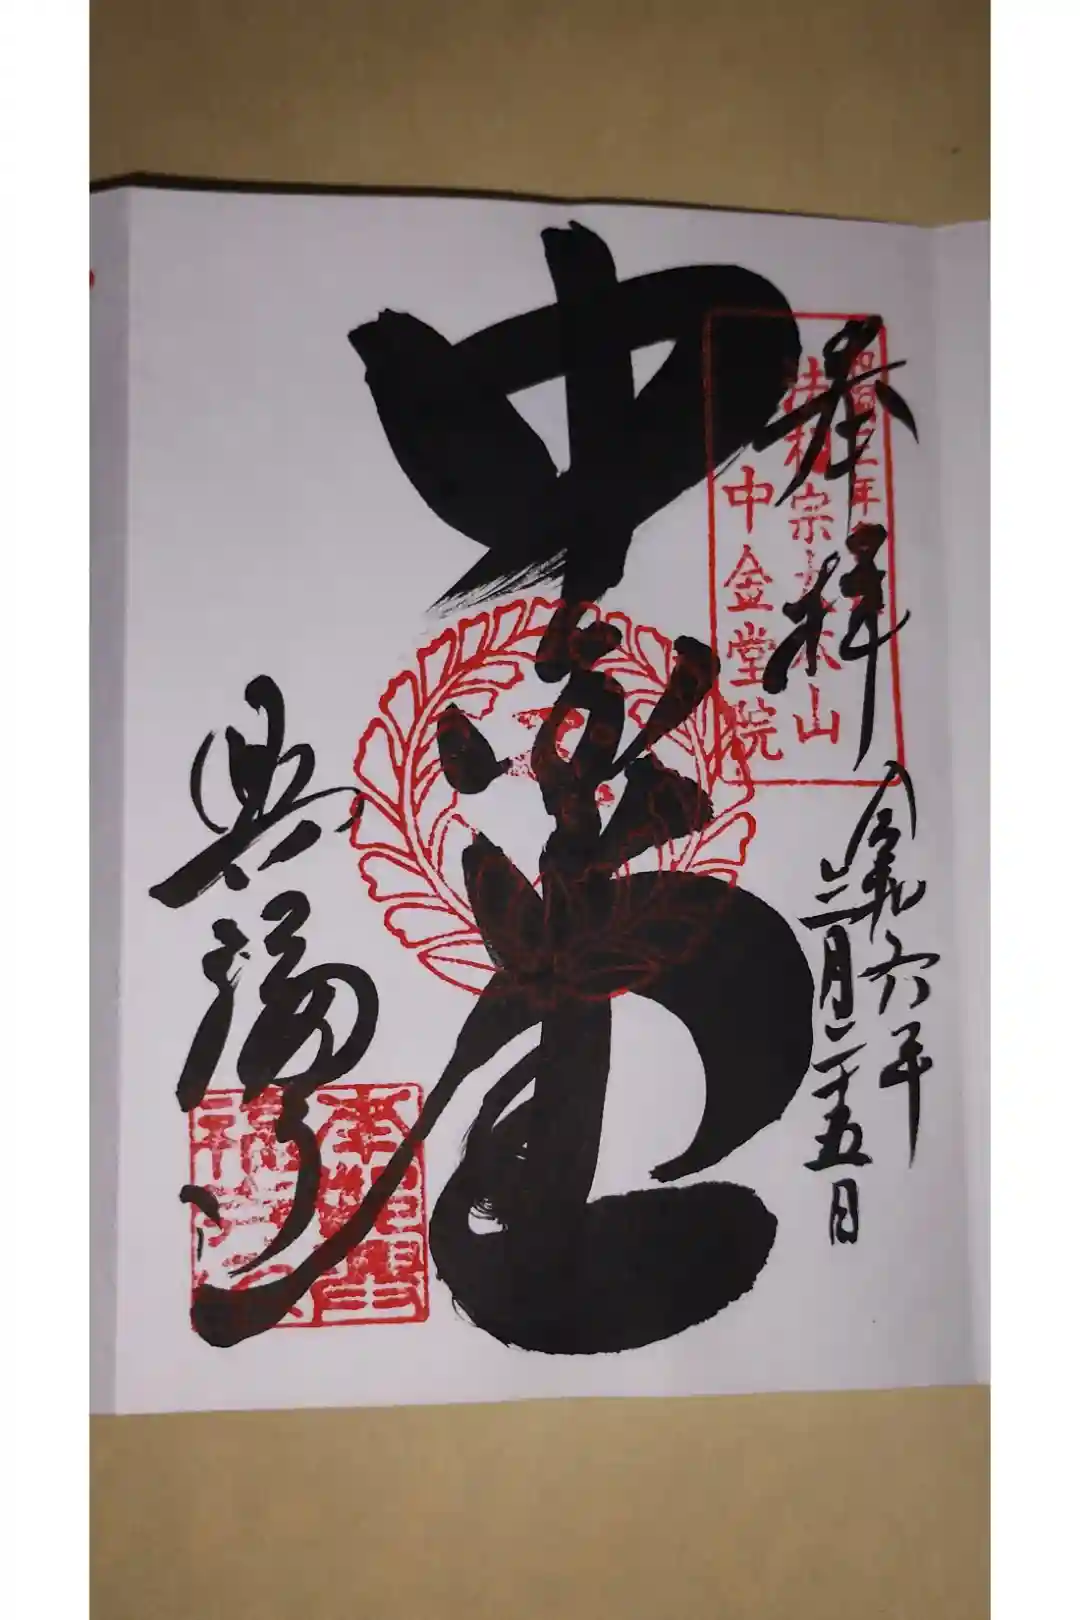 奉拝
令和六年
二月二十五日
法相宗大本山
中金堂院
中金堂
興福寺